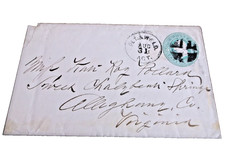 AUG
31
Miss Kate Roy Pollard
Sweet Chalybeate Springs
Alleghany Co.
Virginia